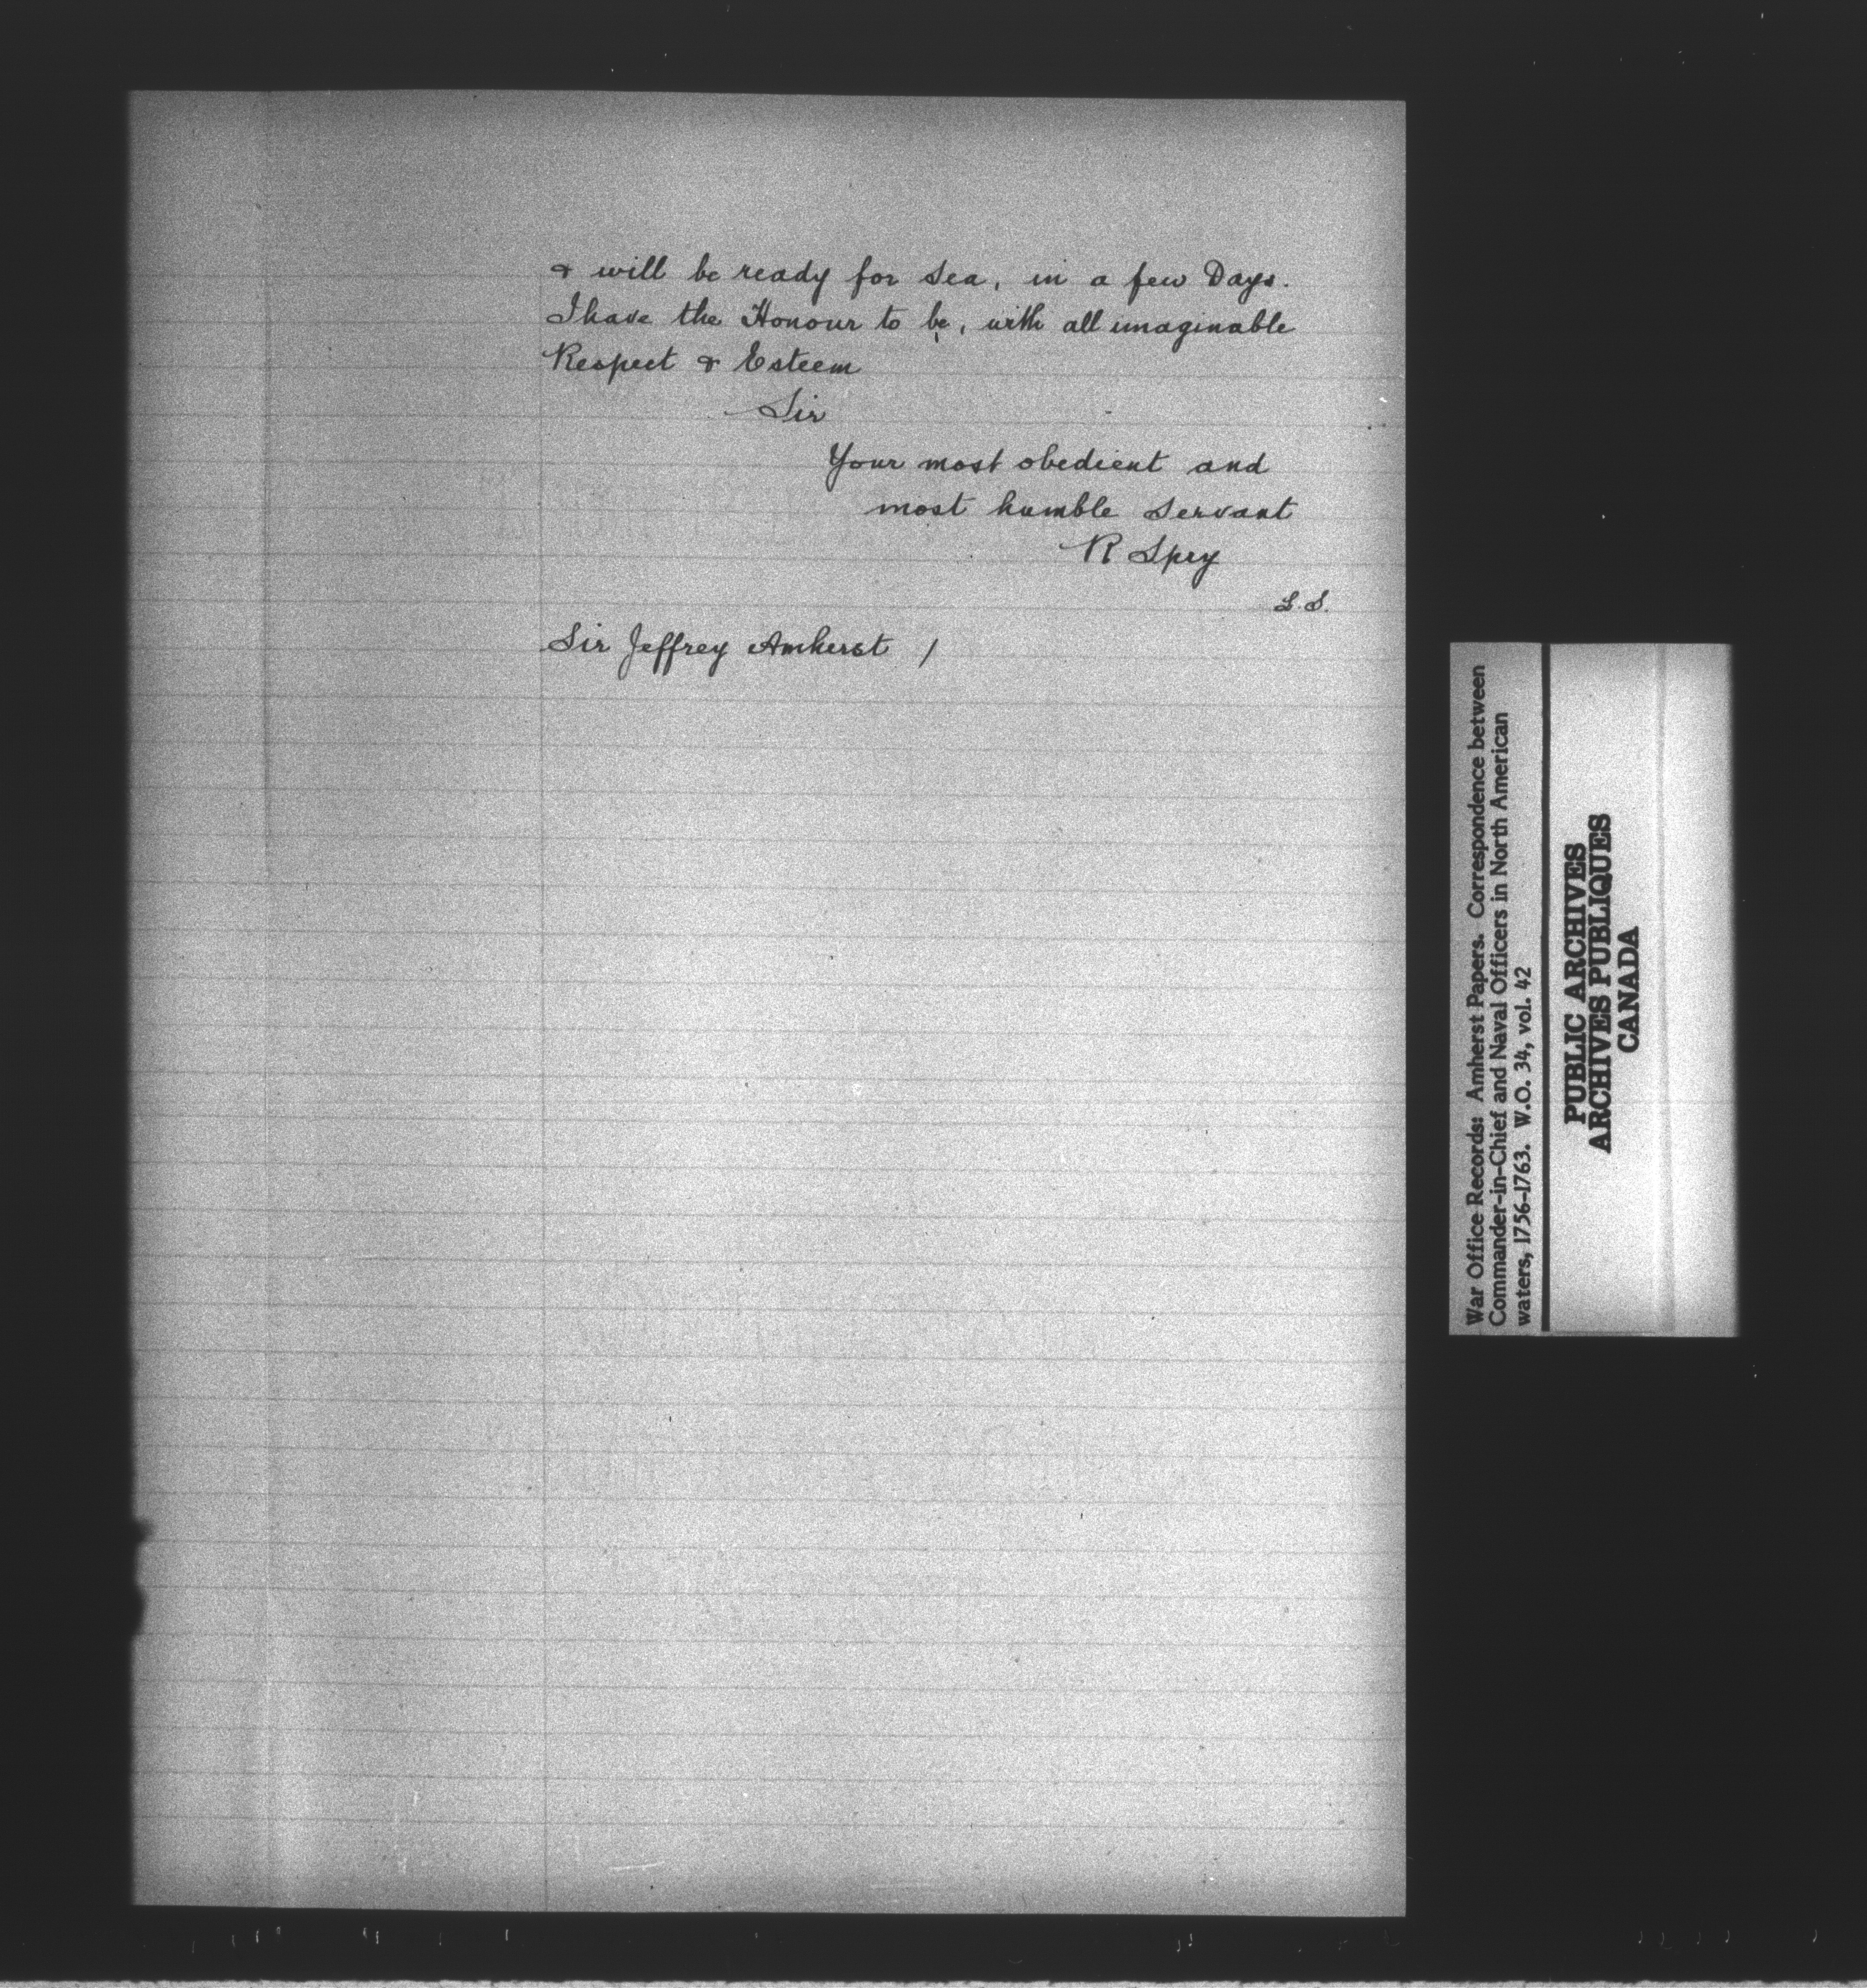 & will be ready for Sea, in a few Days.
I have the Honour to be, with all imaginable
Respect & Esteem
Sir
Your most obedient and
most humble Servant
R Spry
L.S.
Sir Jeffrey Amherst /
War Office Records: Amherst Papers. Correspondence between
Commander-in-Chief and Naval Officers in North American
waters, 1756-1763. W.O. 34, vol. 42
PUBLIC ARCHIVES
ARCHIVES PUBLIQUES
CANADA